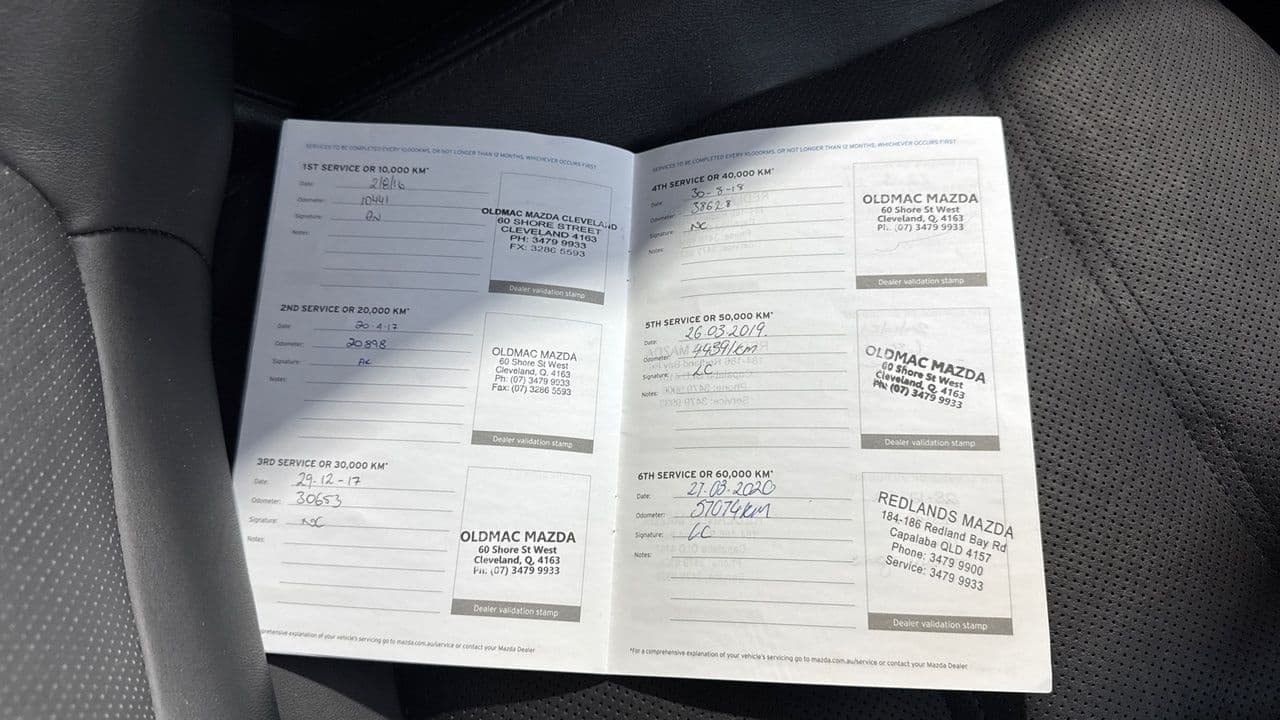 SERVICES TO BE COMPLETED EVERY 10,000KMS, OR NOT LONGER THAN 12 MONTHS, WHICHEVER OCCURS FIRST
1ST SERVICE OR 10,000 KM*
Date: 2/8/16
Odometer: 10441
Signature:
Notes:
OLDMAC MAZDA CLEVELAND
60 SHORE STREET
CLEVELAND 4163
PH: 3479 9933
FX: 3286 5593
Dealer validation stamp
2ND SERVICE OR 20,000 KM*
Date: 20-4-17
Odometer: 20898
Signature:
Notes:
OLDMAC MAZDA
60 Shore St West
Cleveland, Q, 4163
Ph: (07) 3479 9933
Fax: (07) 3286 5593
Dealer validation stamp
3RD SERVICE OR 30,000 KM*
Date: 29-12-17
Odometer: 30653
Signature: NC
Notes:
OLDMAC MAZDA
60 Shore St West
Cleveland, Q, 4163
Ph: (07) 3479 9933
Dealer validation stamp
explanation of your vehicle's servicing go to mazda.com.au/service or contact your Mazda Dealer
SERVICES TO BE COMPLETED EVERY 10,000KMS, OR NOT LONGER THAN 12 MONTHS, WHICHEVER OCCURS FIRST
4TH SERVICE OR 40,000 KM*
Date: 30-8-18
Odometer: 38628
Signature: NC
Notes:
OLDMAC MAZDA
60 Shore St West
Cleveland, Q, 4163
Ph: (07) 3479 9933
Dealer validation stamp
5TH SERVICE OR 50,000 KM*
Date: 26.03.2019.
Odometer: 44391km
Signature: LC
Notes:
OLDMAC MAZDA
60 Shore St West
Cleveland, Q, 4163
Ph: (07) 3479 9933
Dealer validation stamp
6TH SERVICE OR 60,000 KM*
Date: 27.03.2020
Odometer: 57074km
Signature: LC
Notes:
REDLANDS MAZDA
184-186 Redland Bay Rd
Capalaba QLD 4157
Phone: 3479 9900
Service: 3479 9933
Dealer validation stamp
*For a comprehensive explanation of your vehicle's servicing go to mazda.com.au/service or contact your Mazda Dealer